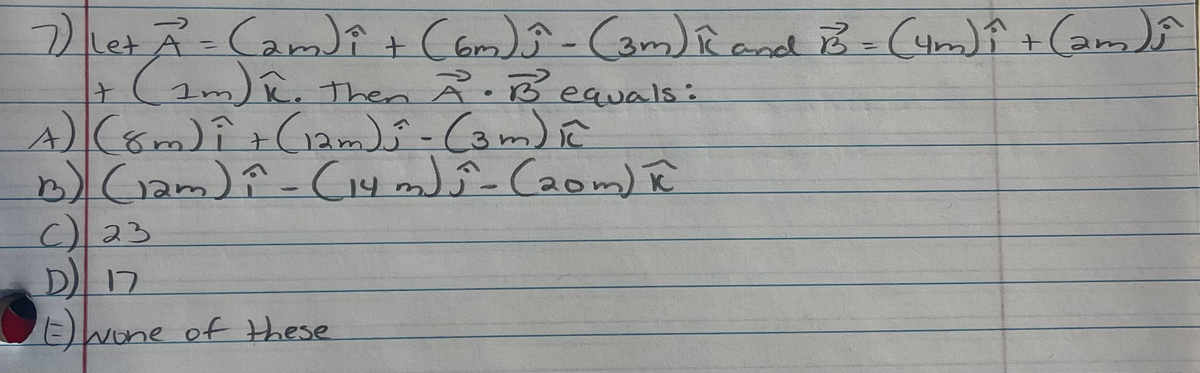 7) Let A⃗ = (2m)î + (6m)ĵ - (3m)k̂ and B⃗ = (4m)î + (2m)ĵ
+ (1m)k̂. Then A⃗ · B⃗ equals:
A) (8m)î + (12m)ĵ - (3m)k̂
B) (12m)î - (14m)ĵ - (20m)k̂
C) 23
D) 17
E) None of these